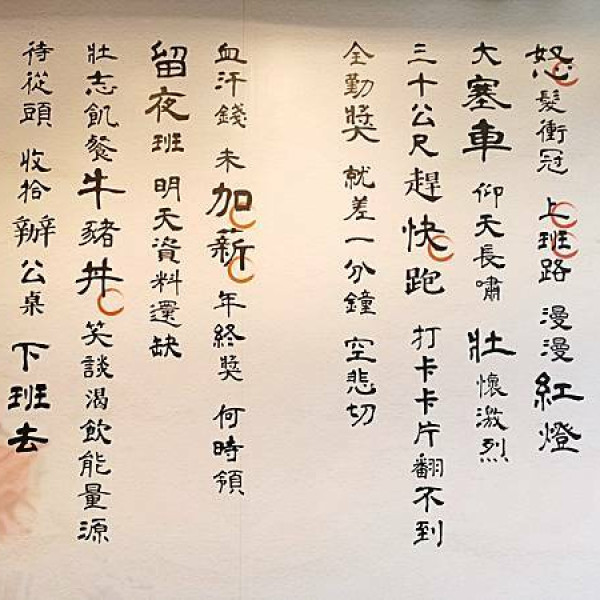 怒髮衝冠 上班路 漫漫紅燈
大塞車 仰天長嘯 壯懷激烈
三十公尺趕快跑 打卡卡片翻不到
全勤獎 就差一分鐘 空悲切
血汗錢 未加薪 年終獎 何時領
留夜班 明天資料還缺
壯志飢餐牛豬丼 笑談渴飲能量源
待從頭 收拾辦公桌 下班去